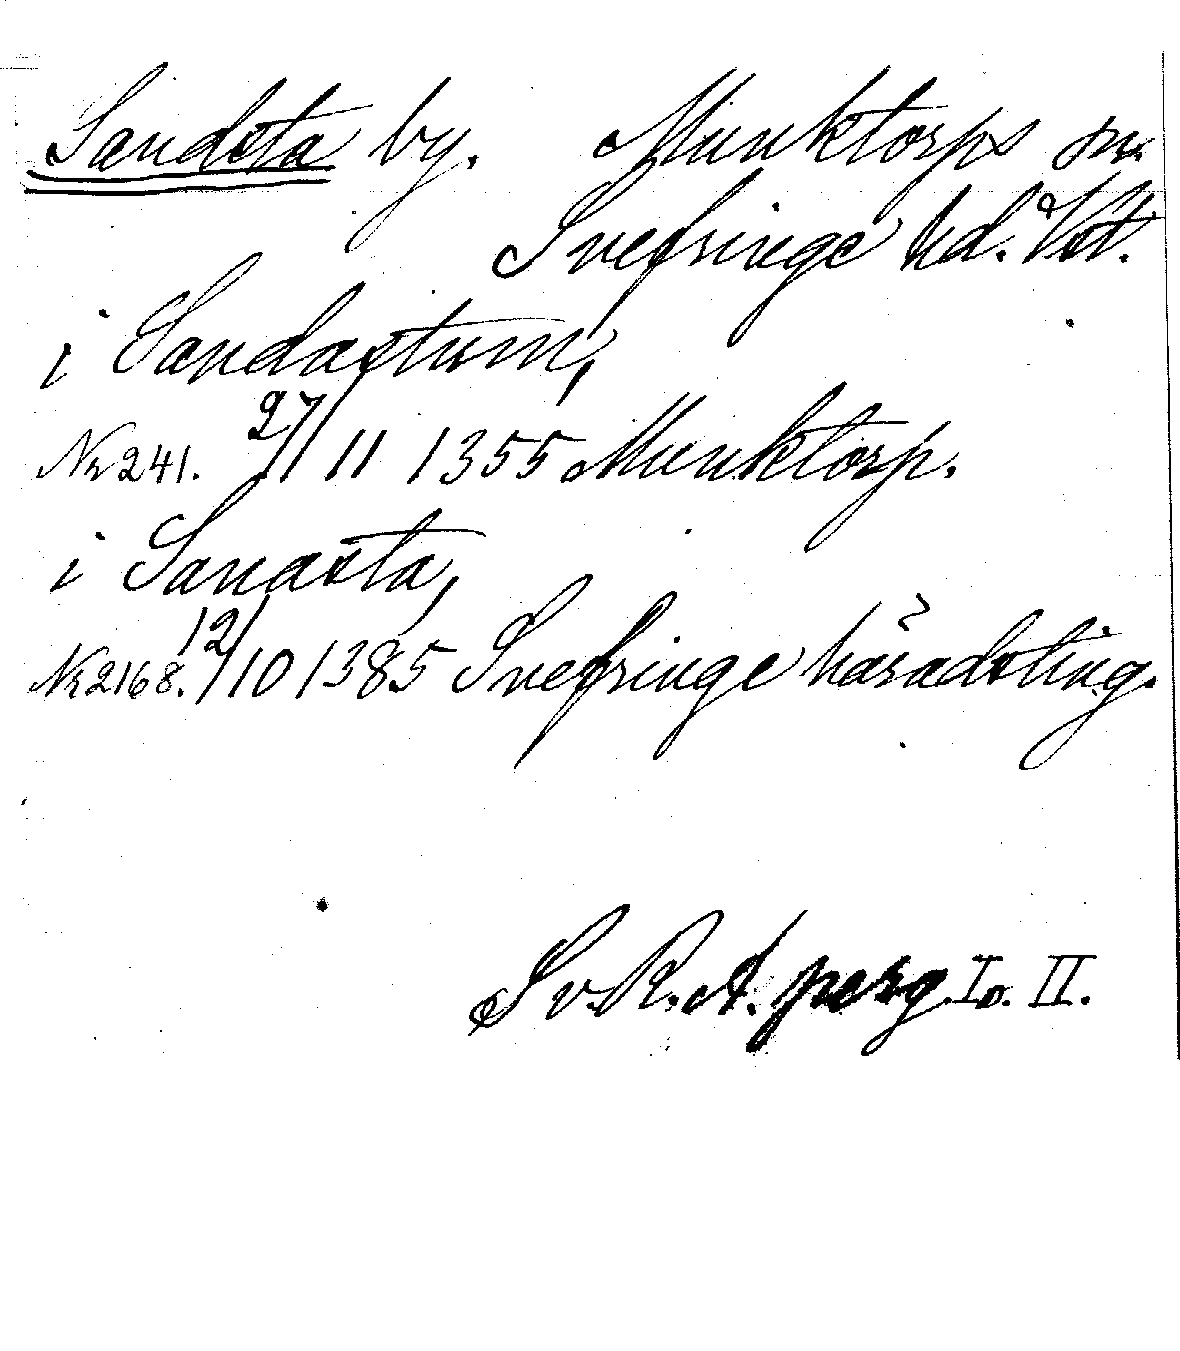 Sandsta by. Munktorps sn.
Snefringe hd. Vstm.
i Sandastum,
Nr 241. 27/11 1355 Munktorp.
i Sanasta,
Nr 2168. 12/10 1385 Snefringe häradsting.
Sv. R. A. perg I o. II.